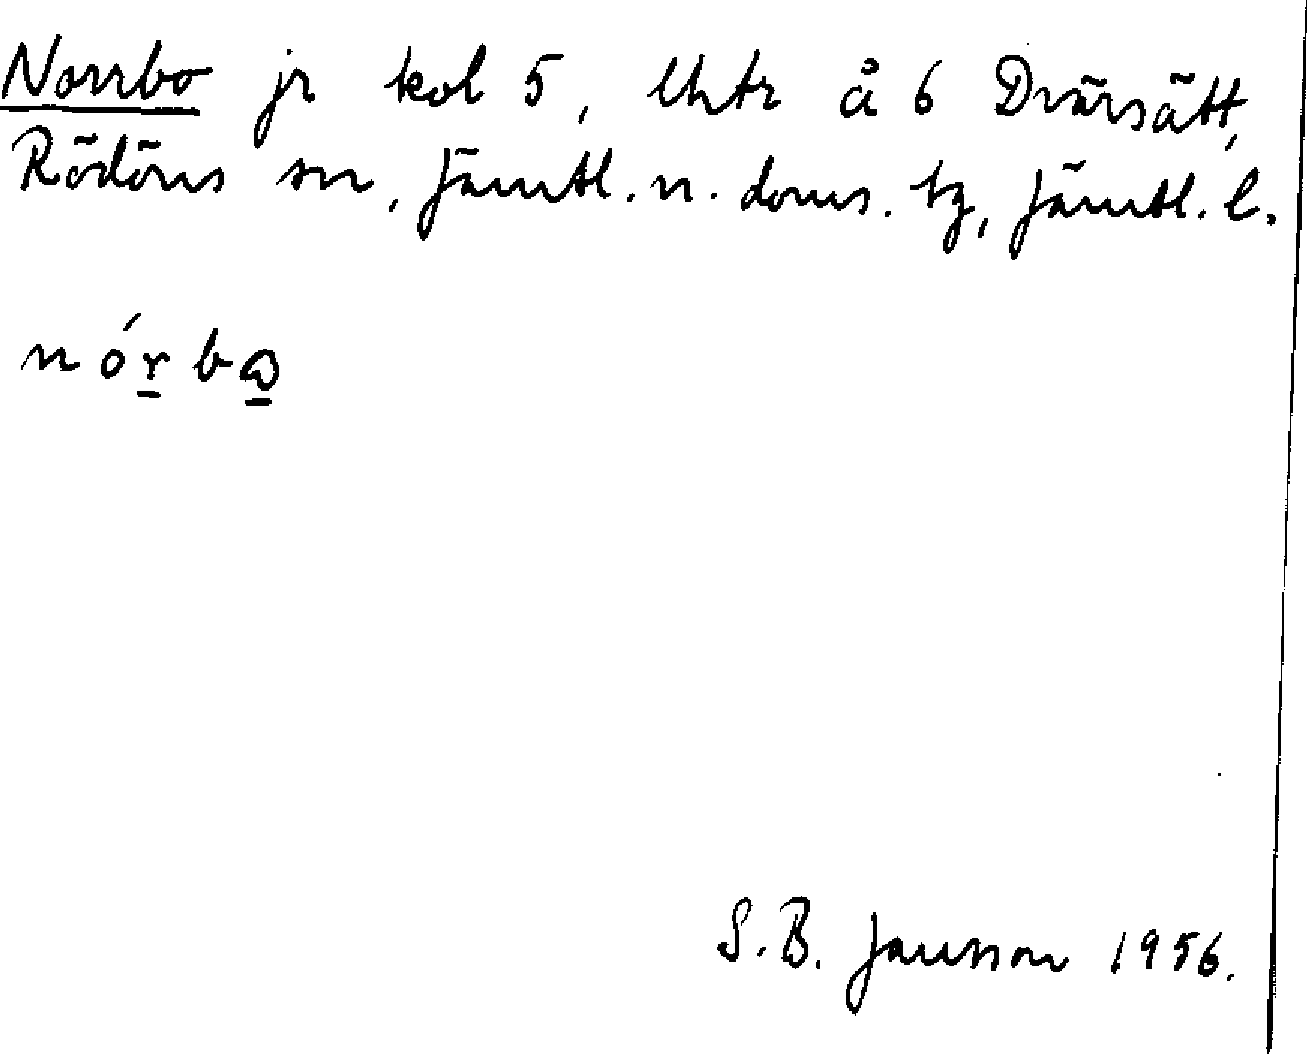 Norrbo jr kol 5, Uhtr å 6 Dvärsätt,
Rödöns sn, Jämtl. n. doms. tg, Jämtl. l.
nórbɷ
S. B. Jansson 1956.